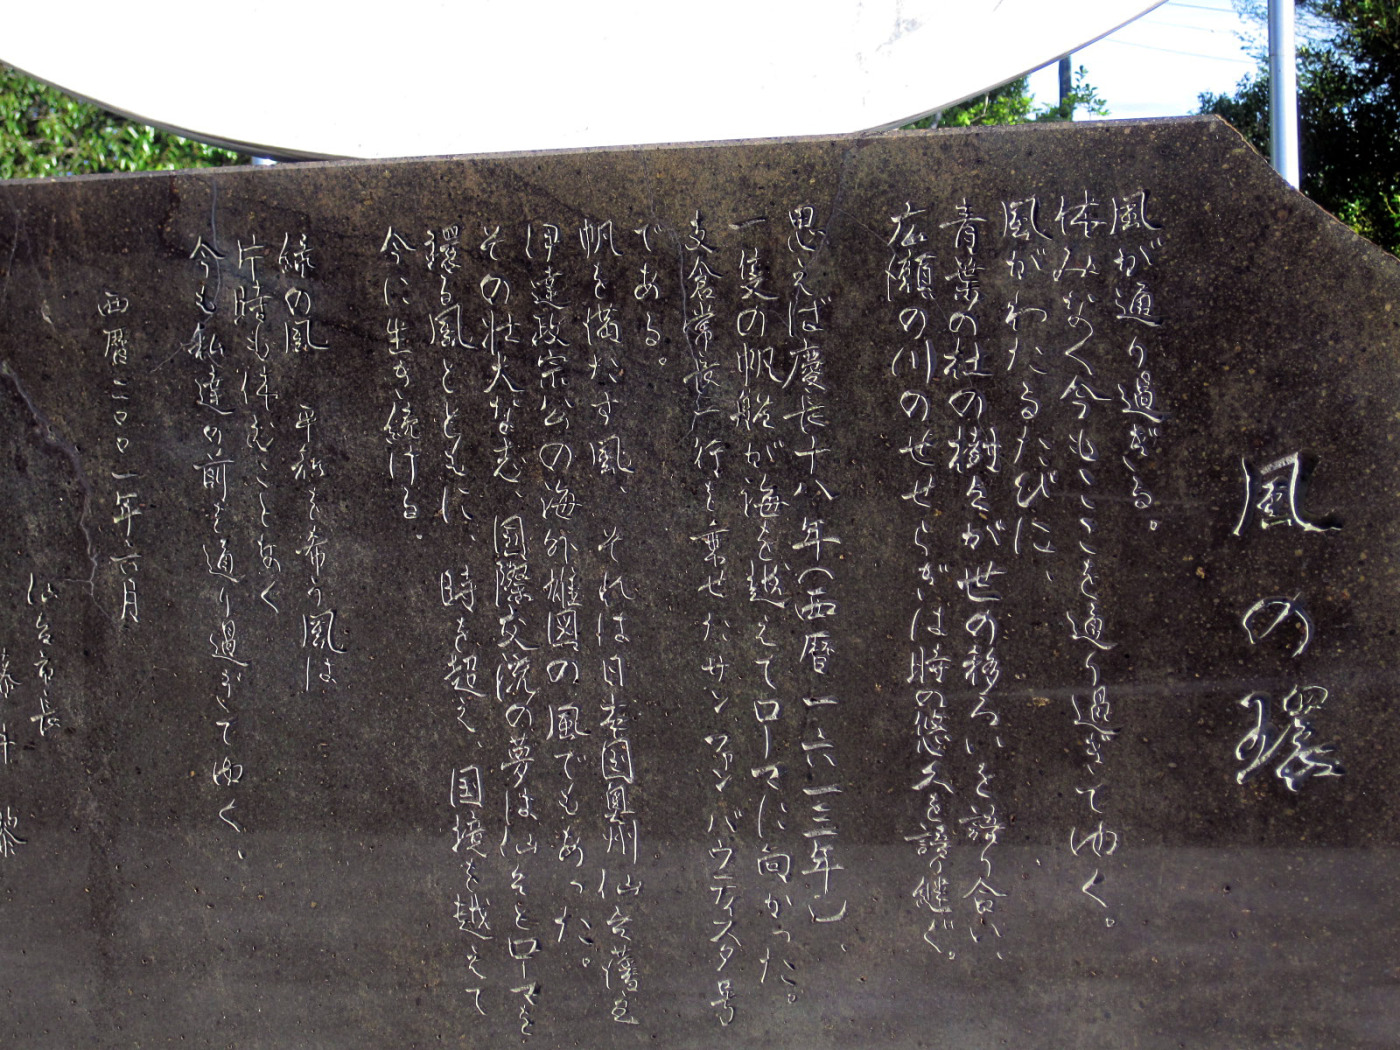 風の環
風が通り過ぎる。
休みなく今もここを通り過ぎてゆく。
風がわたるたびに、
青葉の杜の樹々が世の移ろいを語り合い、
広瀬の川のせせらぎは時の悠久を語り継ぐ。
思えば慶長十八年(西暦一六一三年)、
一隻の帆船が海を越えてローマに向かった。
支倉常長一行を乗せたサンファンバウティスタ号
である。
帆を満たす風、それは日本国奥州仙台藩主
伊達政宗公の海外雄図の風でもあった。
その壮大な志、国際交流の夢は仙台とローマを
環る風とともに、時を超え、国境を越えて
今に生き続ける。
緑の風 平和を希う風は
片時も休むことなく
今も私達の前を通り過ぎてゆく、
西暦二〇〇一年六月
仙台市長
藤井 黎